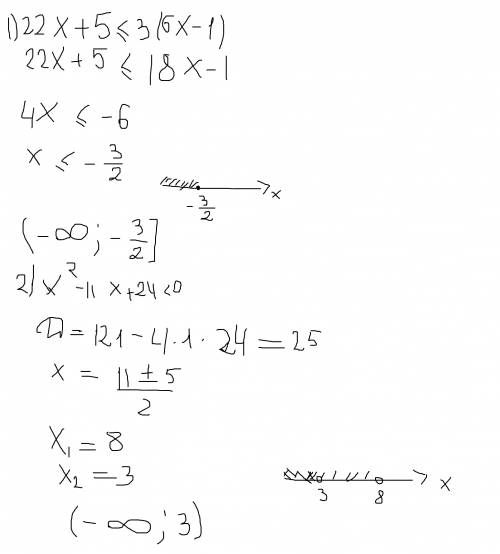 1) 22x+5 ≤ 3(6x-1)
22x+5 ≤ 18x-1
4x ≤ -6
x ≤ -3/2
x
-3/2
(-∞; -3/2]
2) x²-11x+24<0
D = 121-4·1·24=25
x = (11±5)/2
x₁=8
x₂=3
x
3 8
(-∞; 3)